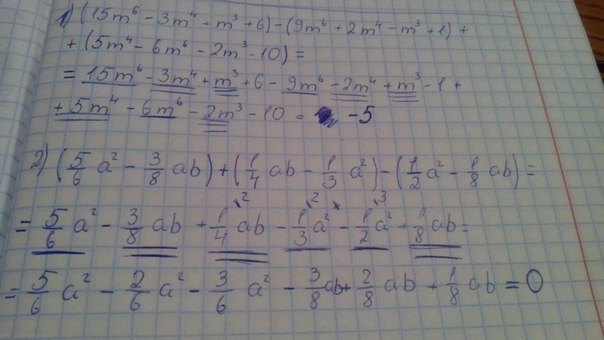 1) (15m⁶ - 3m⁴ + m³ + 6) - (9m⁶ + 2m⁴ - m³ + 1) +
+ (5m⁴ - 6m⁶ - 2m³ - 10) =
= 15m⁶ - 3m⁴ + m³ + 6 - 9m⁶ - 2m⁴ + m³ - 1 +
+ 5m⁴ - 6m⁶ - 2m³ - 10 = -5
2) (5/6 a² - 3/8 ab) + (1/4 ab - 1/3 a²) - (1/2 a² - 1/8 ab) =
= 5/6 a² - 3/8 ab + 1/4\2 ab - 1/3\2 a² - 1/2\3 a² + 1/8 ab =
= 5/6 a² - 2/6 a² - 3/6 a² - 3/8 ab + 2/8 ab + 1/8 ab = 0